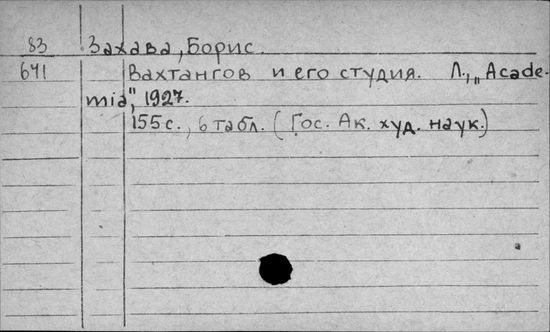 83 Захава, Борис.
641 Вахтангов и его студия. Л., „Acade-
mia", 1927.
155 с., 6 табл. (Гос. Ак. худ. наук.)